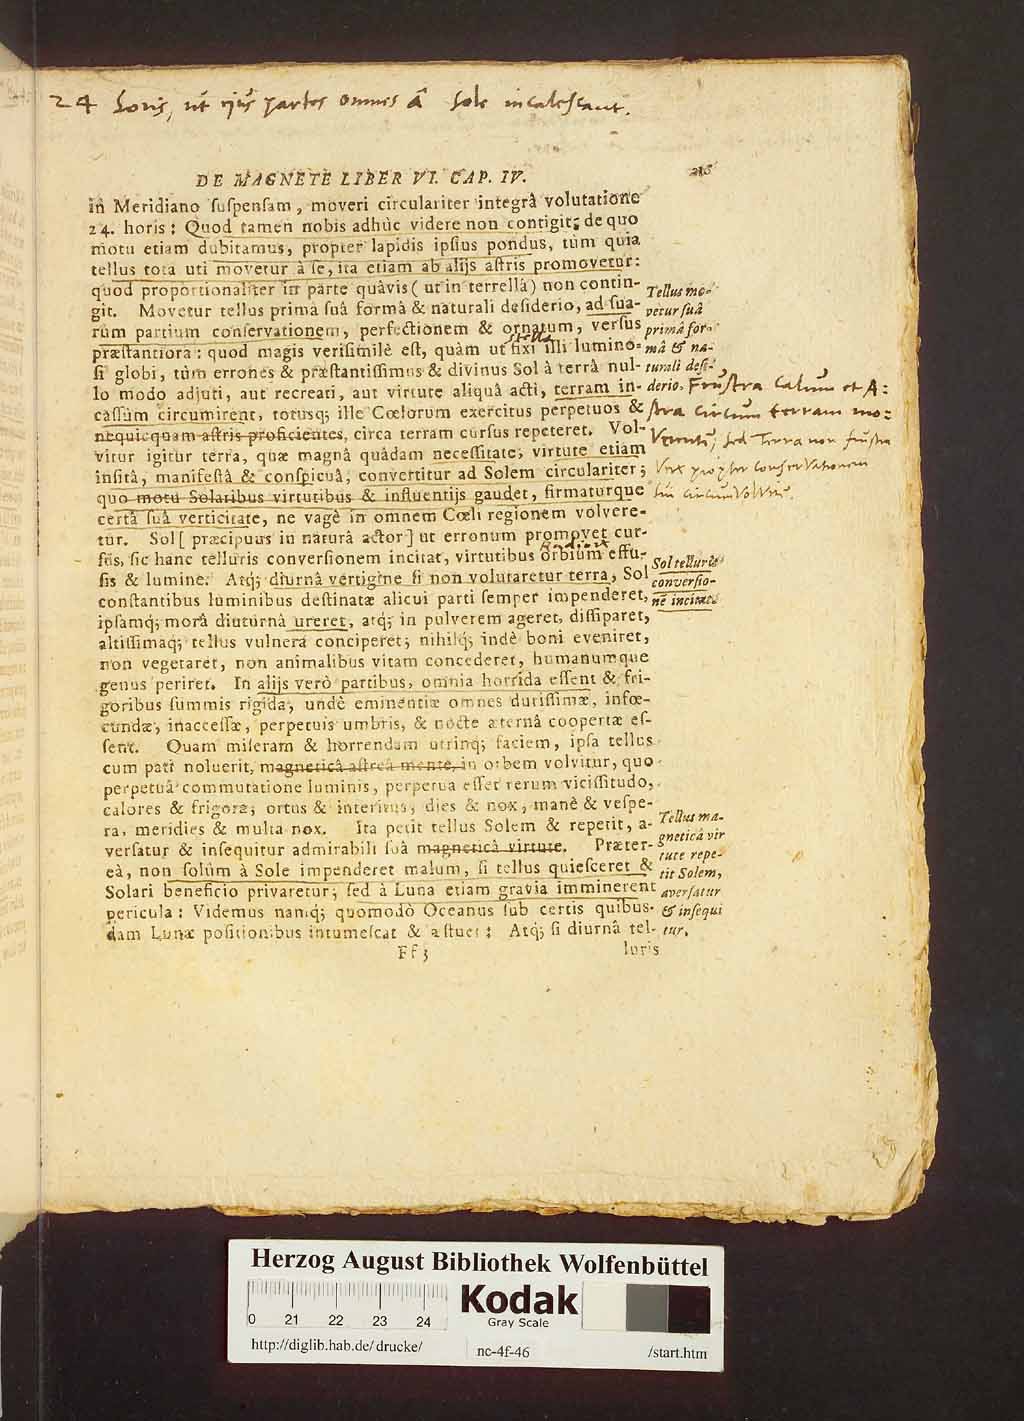 24 horis, ut ejus partes omnes â Sole incalescant.
DE MAGNETE LIBER VI. CAP. IV.
in Meridiano ſuſpenſam, moveri circulariter integrâ volutatione
24. horis: Quod tamen nobis adhûc videre non contigit; de quo
motu etiam dubitamus, propter lapidis ipſius pondus, tùm quia
tellus tota uti movetur à ſe, ita etiam ab alijs aſtris promovetur:
quod proportionaliter in parte quâvis (ut in terrellâ) non contin-
git. Movetur tellus primâ ſuâ formâ & naturali deſiderio, ad ſua-
rùm partium conſervationem, perfectionem & ornatum, verſus
præſtantiora: quod magis veriſimilè eſt, quàm ut fixi illi lumino-
ſi globi, tùm errones & præſtantiſſimus & divinus Sol à terrâ nul-
lo modo adjuti, aut recreati, aut virtute aliquâ acti, terram in-
caſſùm circumirent, totusq; ille Cœlorum exercitus perpetuos &
nequicquam aſtris proficientes, circa terram curſus repeteret. Vol-
vitur igitur terra, quæ magnâ quâdam neceſſitate; virtute etiam
inſitâ, manifeſtâ & conſpicuâ, convertitur ad Solem circulariter;
quo motu Solaribus virtutibus & influentijs gaudet, firmaturque
certâ ſuâ verticitate, ne vagè in omnem Cœli regionem volvere-
tur. Sol [præcipuus in naturâ actor] ut erronum promovet cur-
ſus, ſic hanc telluris converſionem incitat, virtutibus orbium effu-
ſis & lumine. Atq; diurnâ vertigine ſi non volutaretur terra, Sol
conſtantibus luminibus deſtinatæ alicui parti ſemper impenderet,
ipſamq; morâ diuturnâ ureret, atq; in pulverem ageret, diſſiparet,
altiſſimaq; tellus vulnera conciperet; nihilq; indè boni eveniret,
non vegetaret, non animalibus vitam concederet, humanumque
genus periret. In alijs verò partibus, omnia horrida eſſent & fri-
goribus ſummis rigida, undè eminentiæ omnes duriſſimæ, infœ-
cundæ, inacceſſæ, perpetuis umbris, & nocte æternâ coopertæ eſ-
ſent. Quam miſeram & horrendam utrinq; faciem, ipſa tellus
cum pati noluerit, magneticâ aſtreâ mente, in orbem volvitur, quo
perpetuâ commutatione luminis, perpetua eſſet rerum viciſſitudo,
calores & frigora; ortus & interitus, dies & nox, manè & veſpe-
ra, meridies & multa nox. Ita petit tellus Solem & repetit, a-
verſatur & inſequitur admirabili ſuâ magneticâ virtute. Præter-
eà, non ſolùm à Sole impenderet malum, ſi tellus quieſceret &
Solari beneficio privaretur; ſed à Luna etiam gravia imminerent
pericula: Videmus namq; quomodò Oceanus ſub certis quibus-
dam Lunæ poſitionibus intumeſcat & æſtuet: Atq; ſi diurnâ tel-
Ff 3
luris
Tellus mo-
vetur ſuâ
primâ for-
mâ & na-
turali deſi-
derio.
Frustra Cælum et A:
stra circum terram mo:
Verentur, sed Terra non frustra
Vert propter conservationem
sui circumvolvitur.
stella
Sol telluris
converſio-
nē incitat.
Tellus ma-
gneticâ vir
tute repe-
tit Solem,
averſatur
& inſequi
tur.
Herzog August Bibliothek Wolfenbüttel
0 21 22 23 24
Kodak
Gray Scale
http://diglib.hab.de/drucke/
nc-4f-46
/start.htm